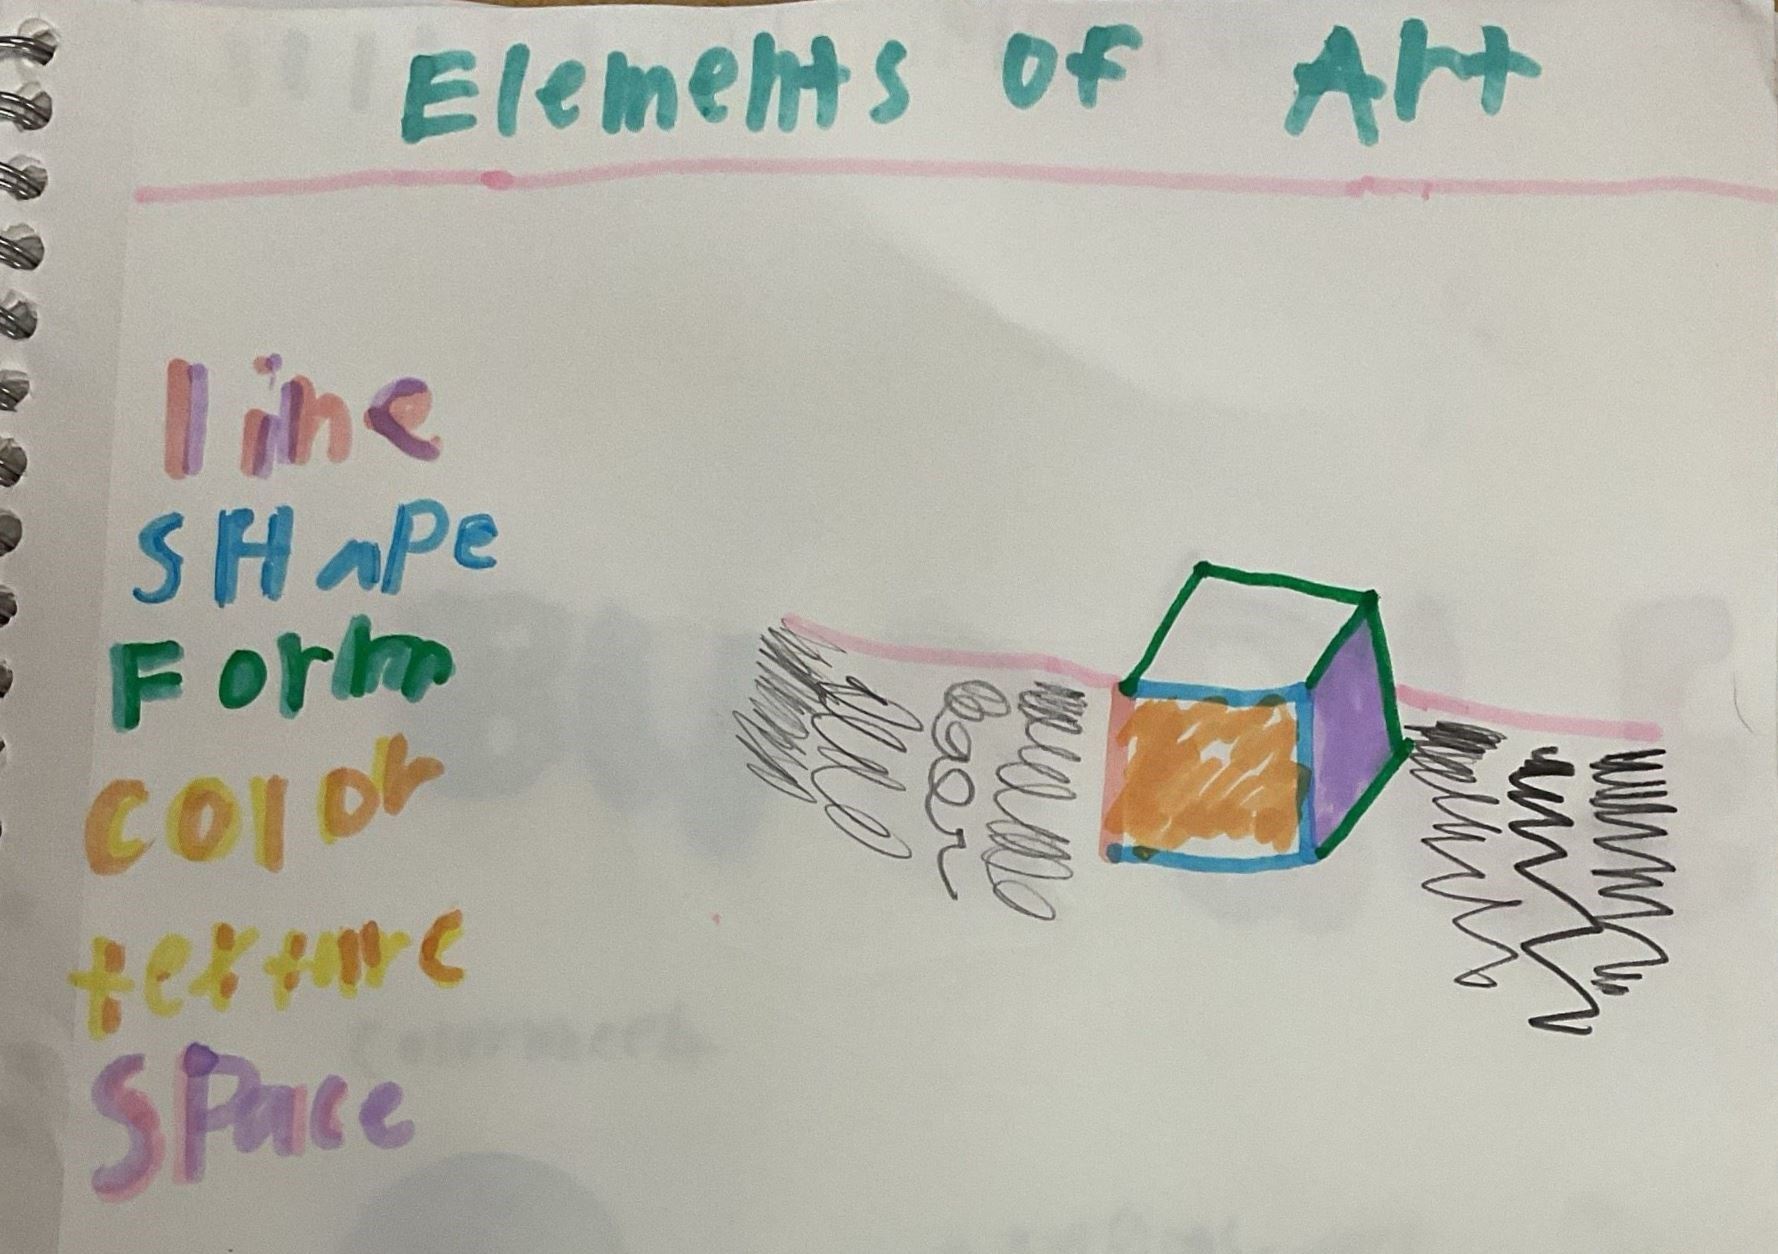 Elements of Art
line
SHape
Form
color
texture
SPace